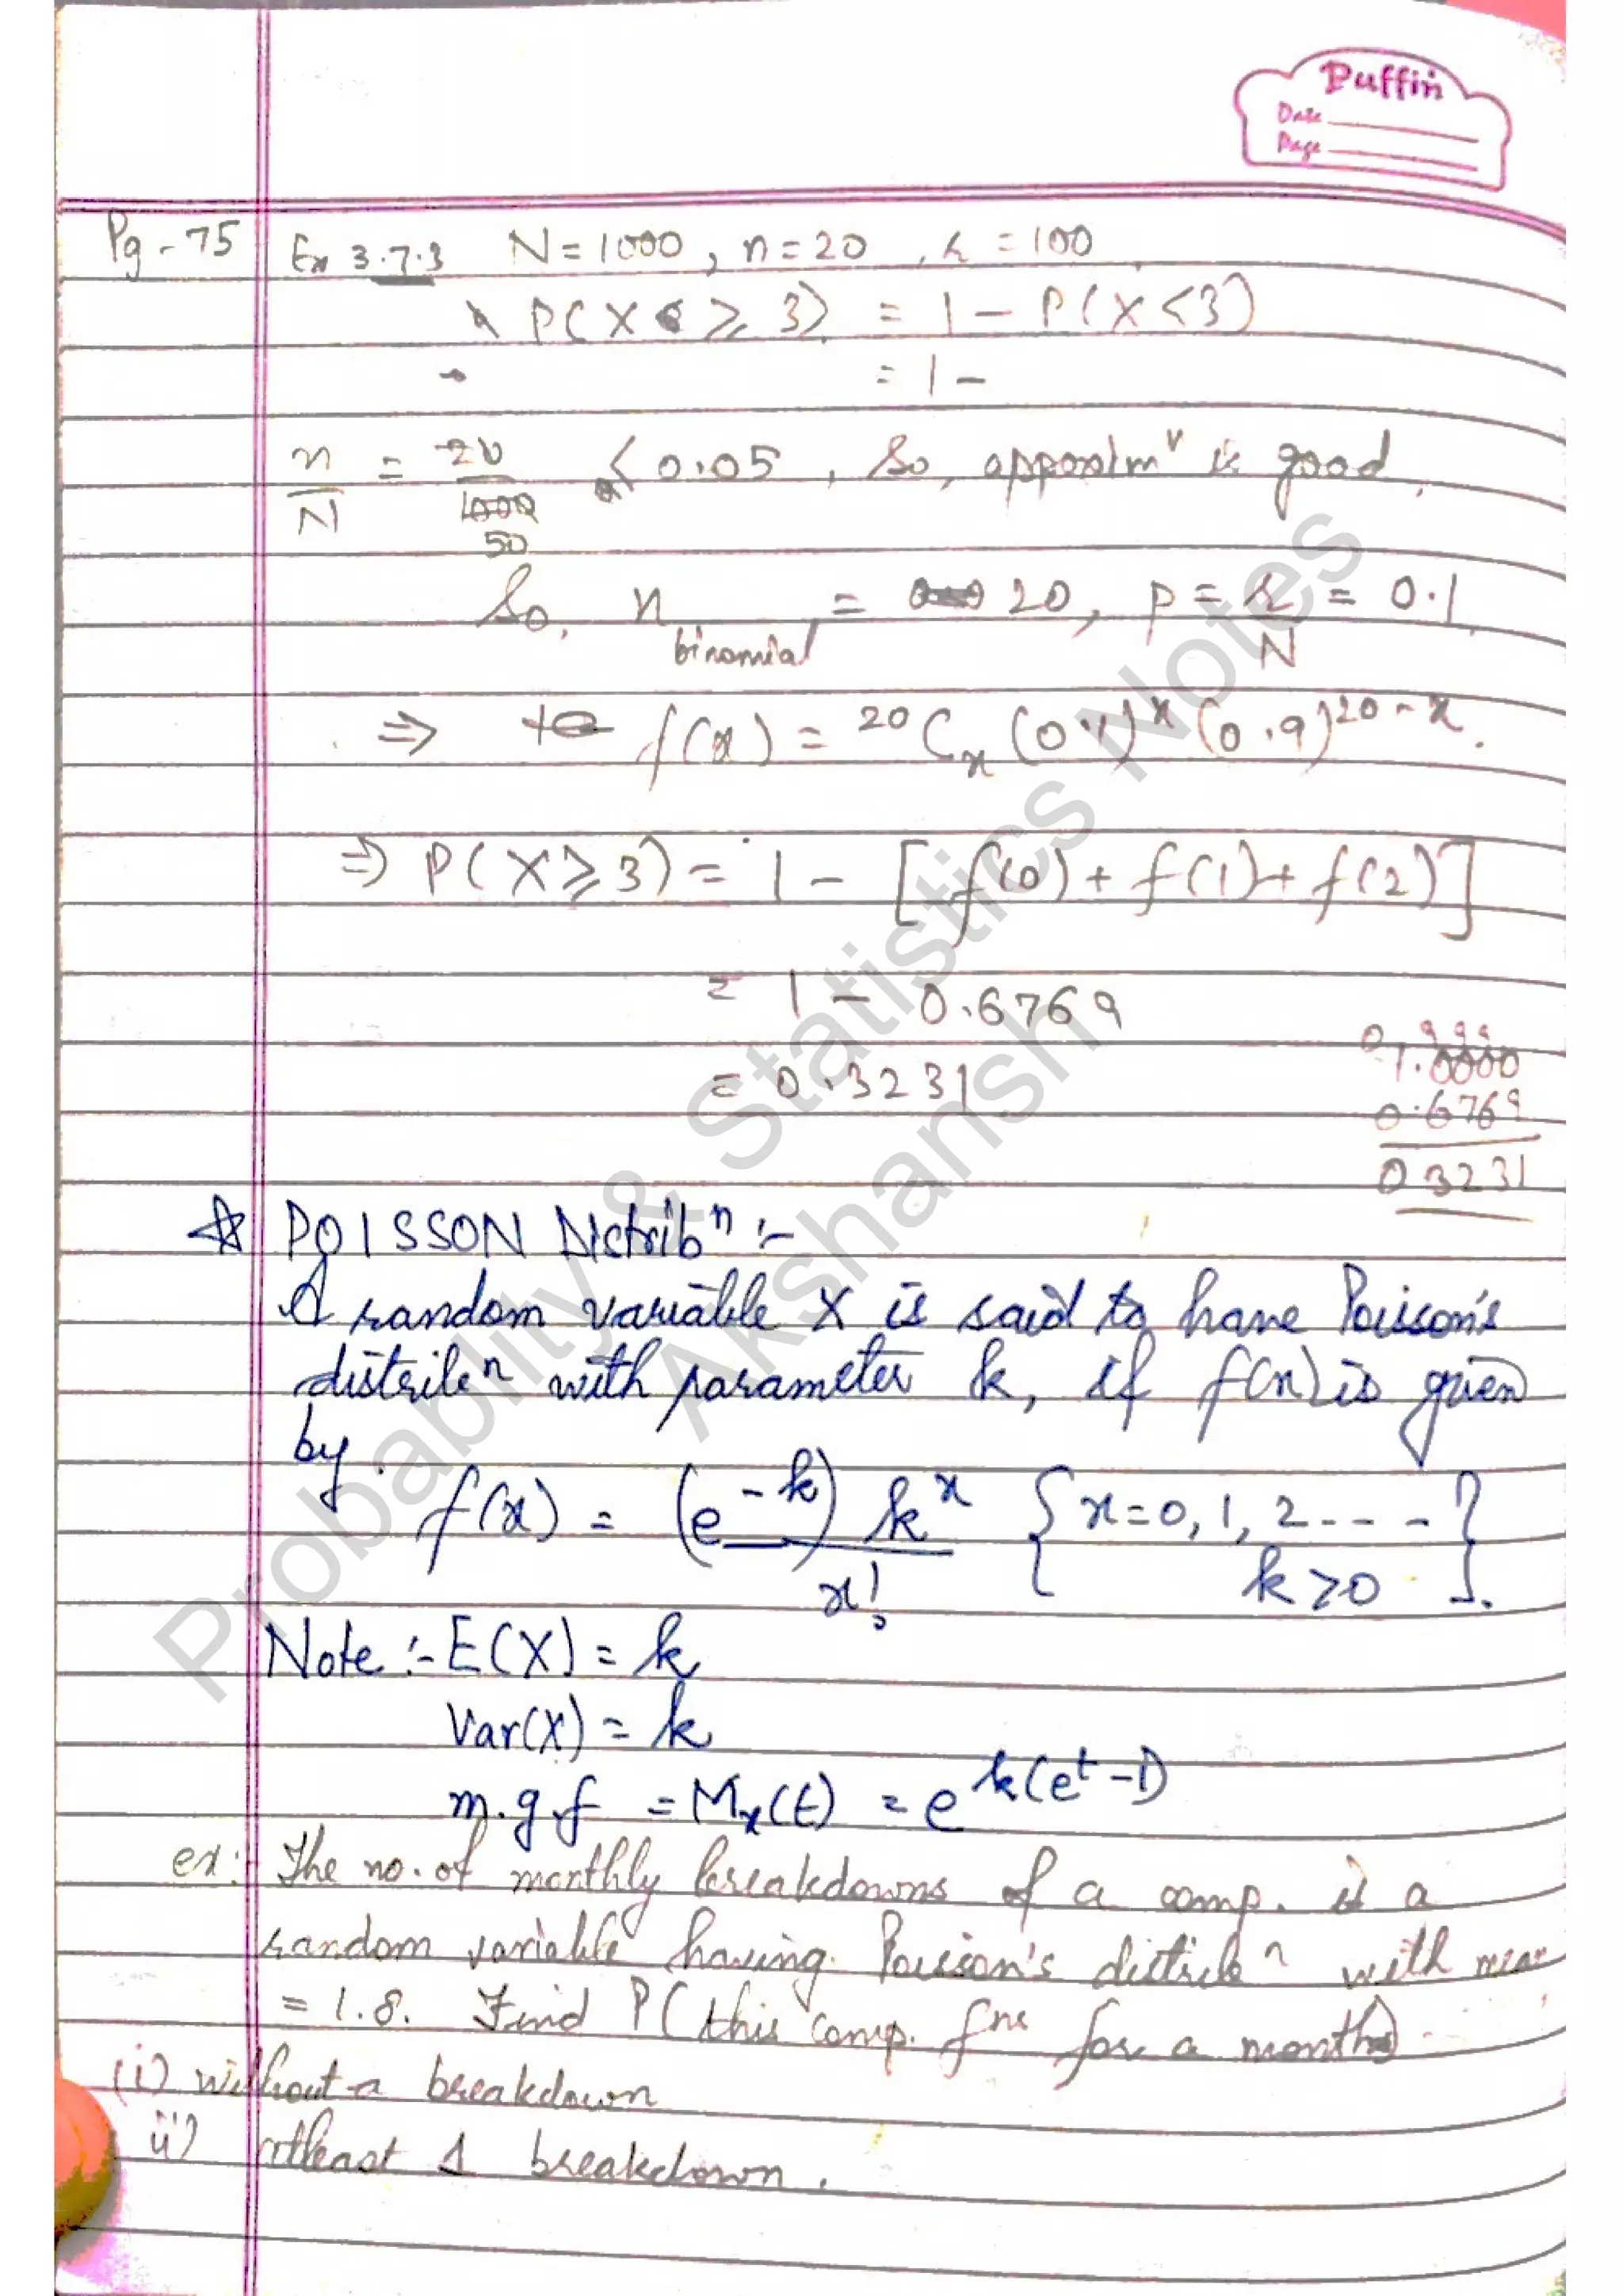 Puffin
Date
Page
Pg - 75
Ex 3.7.3 N = 1000, n = 20, r = 100
P(X ≥ 3) = 1 - P(X < 3)
= 1 -
n/N = 20/1000 < 0.05, So, approxim^n is good.
50
So, n binomial = 20, p = r/N = 0.1
⇒ f(x) = 20Cx (0.1)^x (0.9)^20-x.
⇒ P(X ≥ 3) = 1 - [f(0) + f(1) + f(2)]
= 1 - 0.6769
= 0.3231
0 9 9 9
1.0000
0.6769
0 3231
☆ POISSON Distrib^n :-
A random variable X is said to have Poisson's
distrib^n with parameter k, if f(x) is given
by
f(x) = (e^-k) k^x / x! {x = 0, 1, 2 - - - - k > 0}.
Note :- E(X) = k
Var(X) = k
m.g.f = Mx(t) = e^k(e^t - 1)
ex:- The no. of monthly breakdowns of a comp. is a
random variable having Poisson's distrib^n with mean
= 1.8. Find P(this comp. f^ns for a month)
(i) without a breakdown
ii) atleast 1 breakdown.
Probability & Statistics Notes
Akshansh